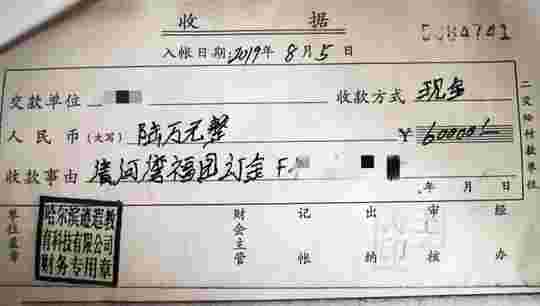 收 据
入帐日期:2019年8月5日
交款单位 收款方式 现金
人民币(大写) 陆万元整 ¥60000
收款事由 河湾福 订金 F
年 月 日
二交给付款单位
单位盖章
哈尔滨 教
育科技有限公司
财务专用章
财会主管
记帐
出纳
审核
经办